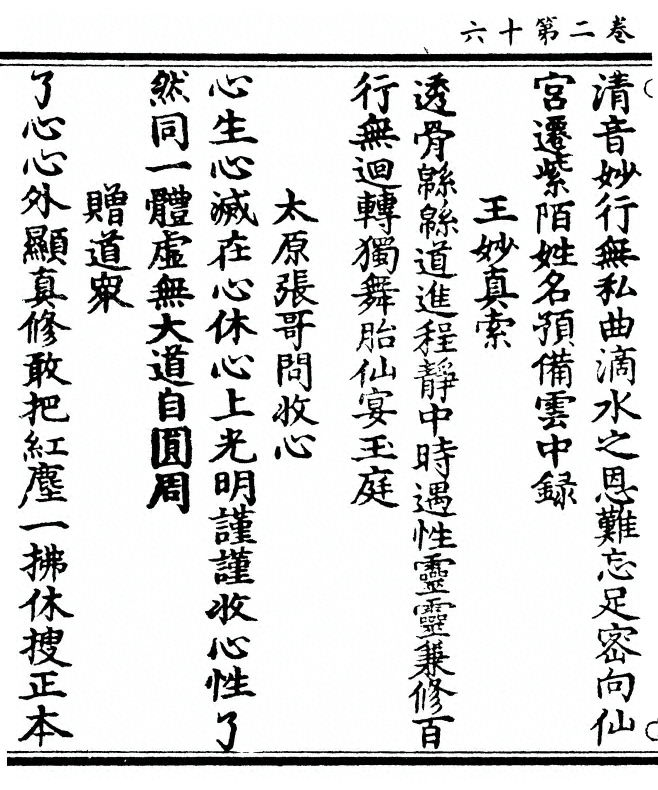 卷二第十六
清音妙行無私曲滴水之恩難忘足密向仙
宮遷紫陌姓名預備雲中録
王妙真索
透骨緜緜道進程靜中時遇性靈靈兼修百
行無迴轉獨舞胎仙宴玉庭
太原張哥問收心
心生心滅在心休心上光明謹謹收心性了
然同一體虛無大道自圓周
贈道衆
了心心外顯真修敢把紅塵一拂休搜正本